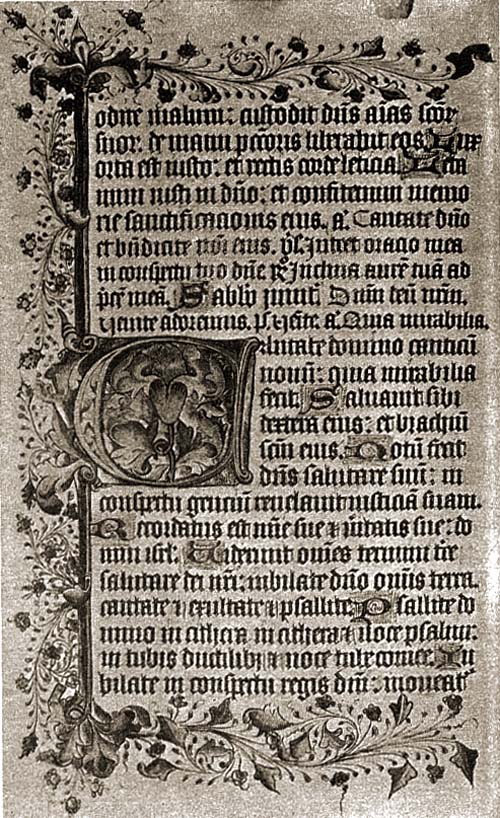 odite malum: custodit dns aias scor
suor: de manu pctoris liberabit eos. Lux
orta est iusto: et rectis corde leticia. Leta
mini iusti in dno: et confitemini memo
rie sanctificacionis eius. a. Cantate dno
et bndicite noi eius. ps. Intret oracio mea
in conspectu tuo dne R Inclina aure tua ad
pce mea. Sabbo
venite adoremus. ps. venite. a. Quia mirabilia.
Cantate domino canticu
nouu: quia mirabilia
fecit. Saluauit sibi
dextera eius: et brachiu
scm eius. Notu fecit
dns salutare suu: in
conspectu genciu reuelauit iusticia suam.
Recordatus est mie sue et uitatis sue: do
mui isrl. Viderunt omnes termini tre
salutare dei nri: iubilate dno omnis terra.
cantate et exultate et psallite. Psallite do
mino in cithara in cithara et uoce psalmi:
in tubis ductilibz et uoce tube cornee. Iu
bilate in conspectu regis dni: moueat